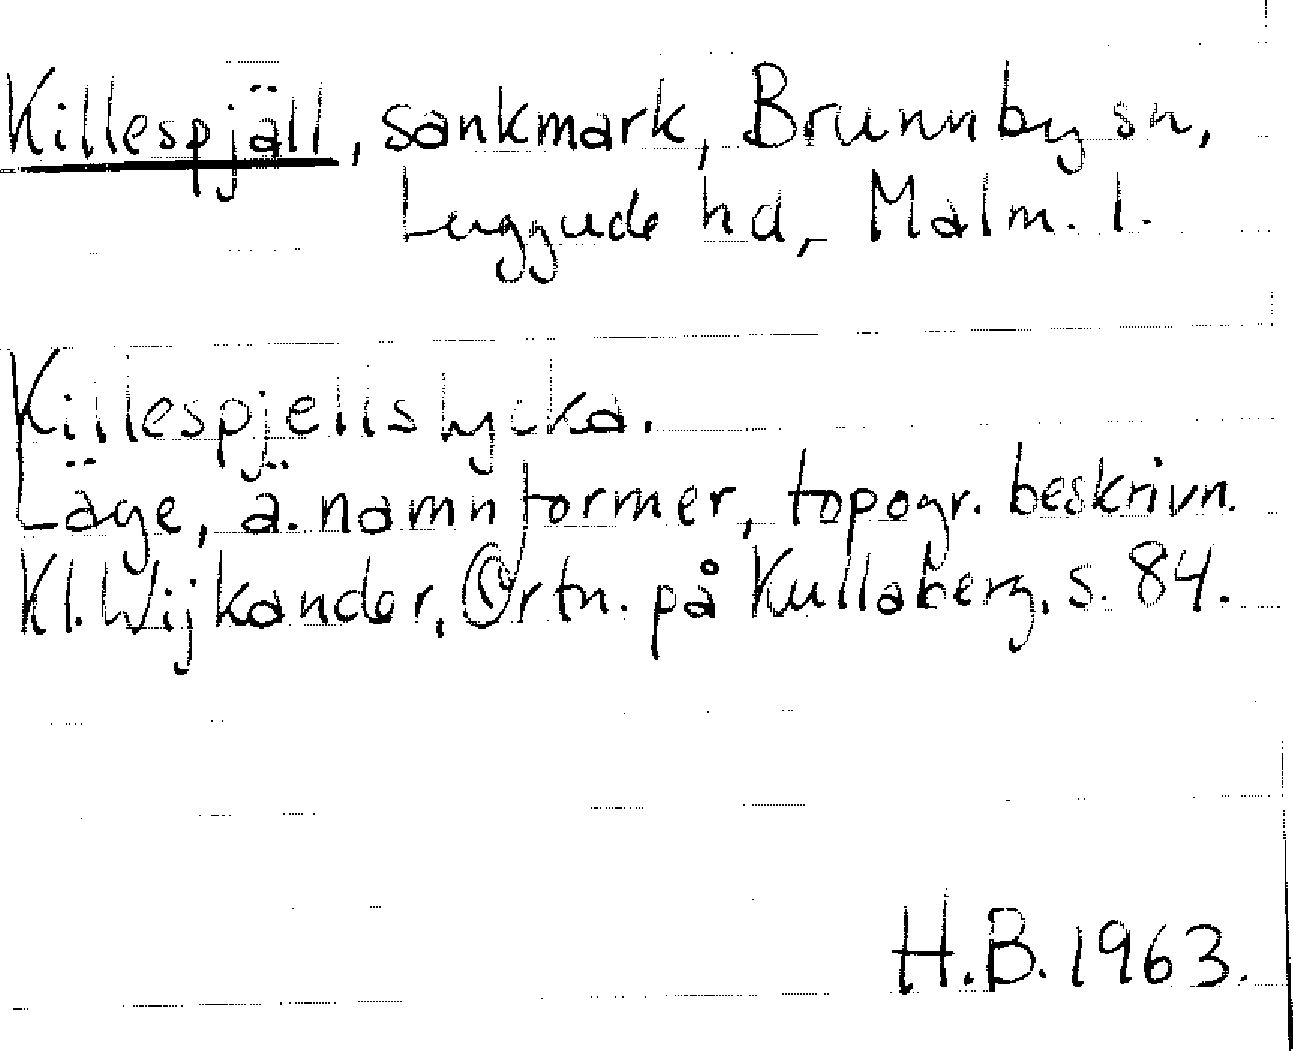 Killespjäll, sankmark, Brunnby sn,
Luggude hd, Malm. l.
Killespjellslycka.
Läge, ä. namnformer, topogr. beskrivn.
Kl. Wijkander, Ortn. på Kullaberg, s. 84.
H.B. 1963.